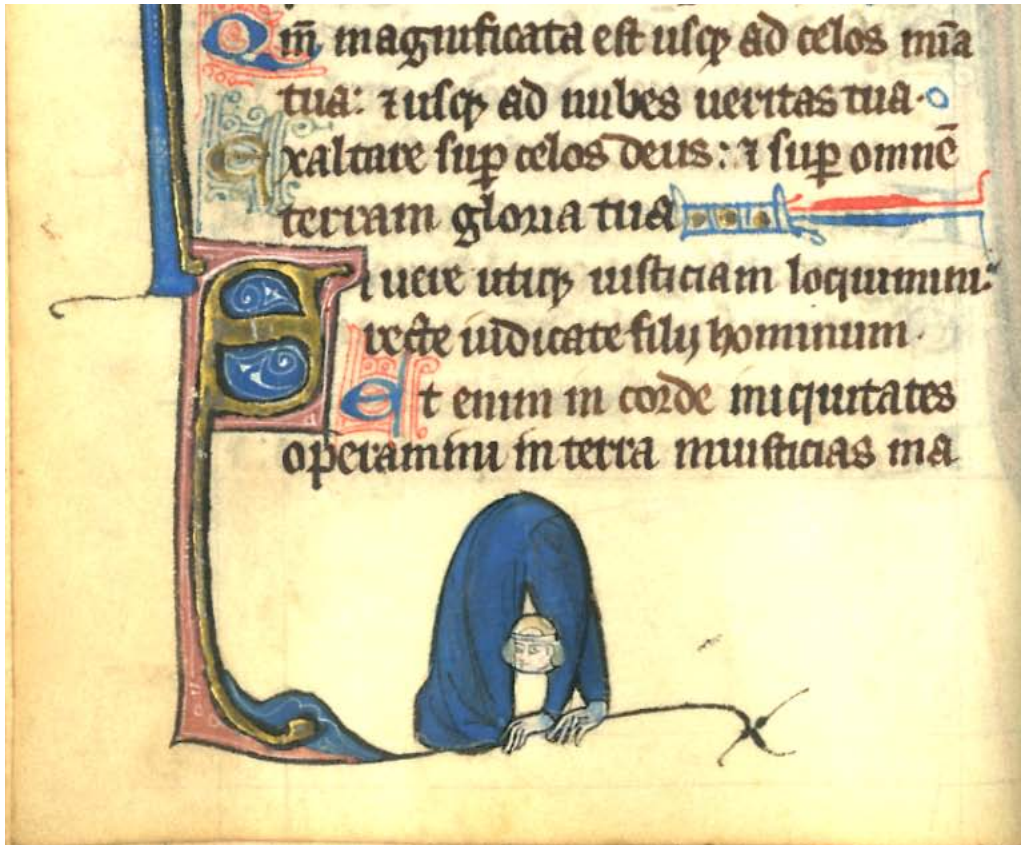 Qm̄ magnificata est usqꝫ ad celos mīa
tua: ⁊ usqꝫ ad nubes ueritas tua.
Exaltare suꝑ celos deus: ⁊ suꝑ omnē
terram gloria tua
Si uere utiqꝫ iusticiam loquimini:
recte iudicate filij hominum.
Et enim in corde iniquitates
operamini in terra iniusticias ma